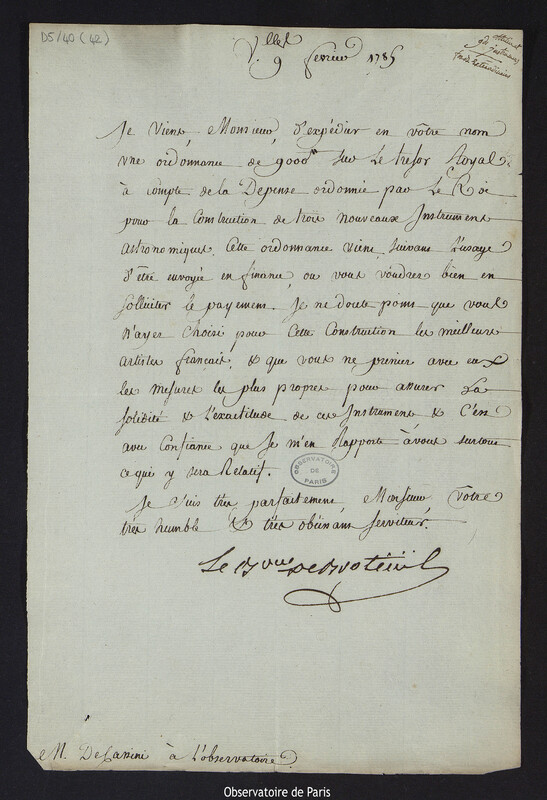 D5/40 (42)
V.lles
9 fevrier 1785
Je Viens, Monsieur, d'expédier en vôtre nom
une ordonnance de 9000.# sur Le tresor Royal
à compte de la Depense ordonnée par Le Roi
pour la Construction de trois nouveaux Instrumens
astronomiques. Cette ordonnance vient, suivant L'usage
d'être envoyée en finance, ou vous voudrez bien en
solliciter le payement. Je ne doute point que vous
n'ayez choisi pour Cette Construction les meilleurs
artistes français, & que vous ne preniez avec eux
les mesures les plus propres pour assurer La
solidité & L'exactitude de ces Instrumens & C'est
avec Confiance que Je m'en Rapporte à vous sur tout
ce qui y sera Relatif.
OBSERVATOIRE
DE
PARIS
Je suis très parfaitement, Monsieur, Vôtre
très humble & très obéissant serviteur.
Le B.on De Breteüil
M. De Cassini à L'observatoire
Observatoire de Paris